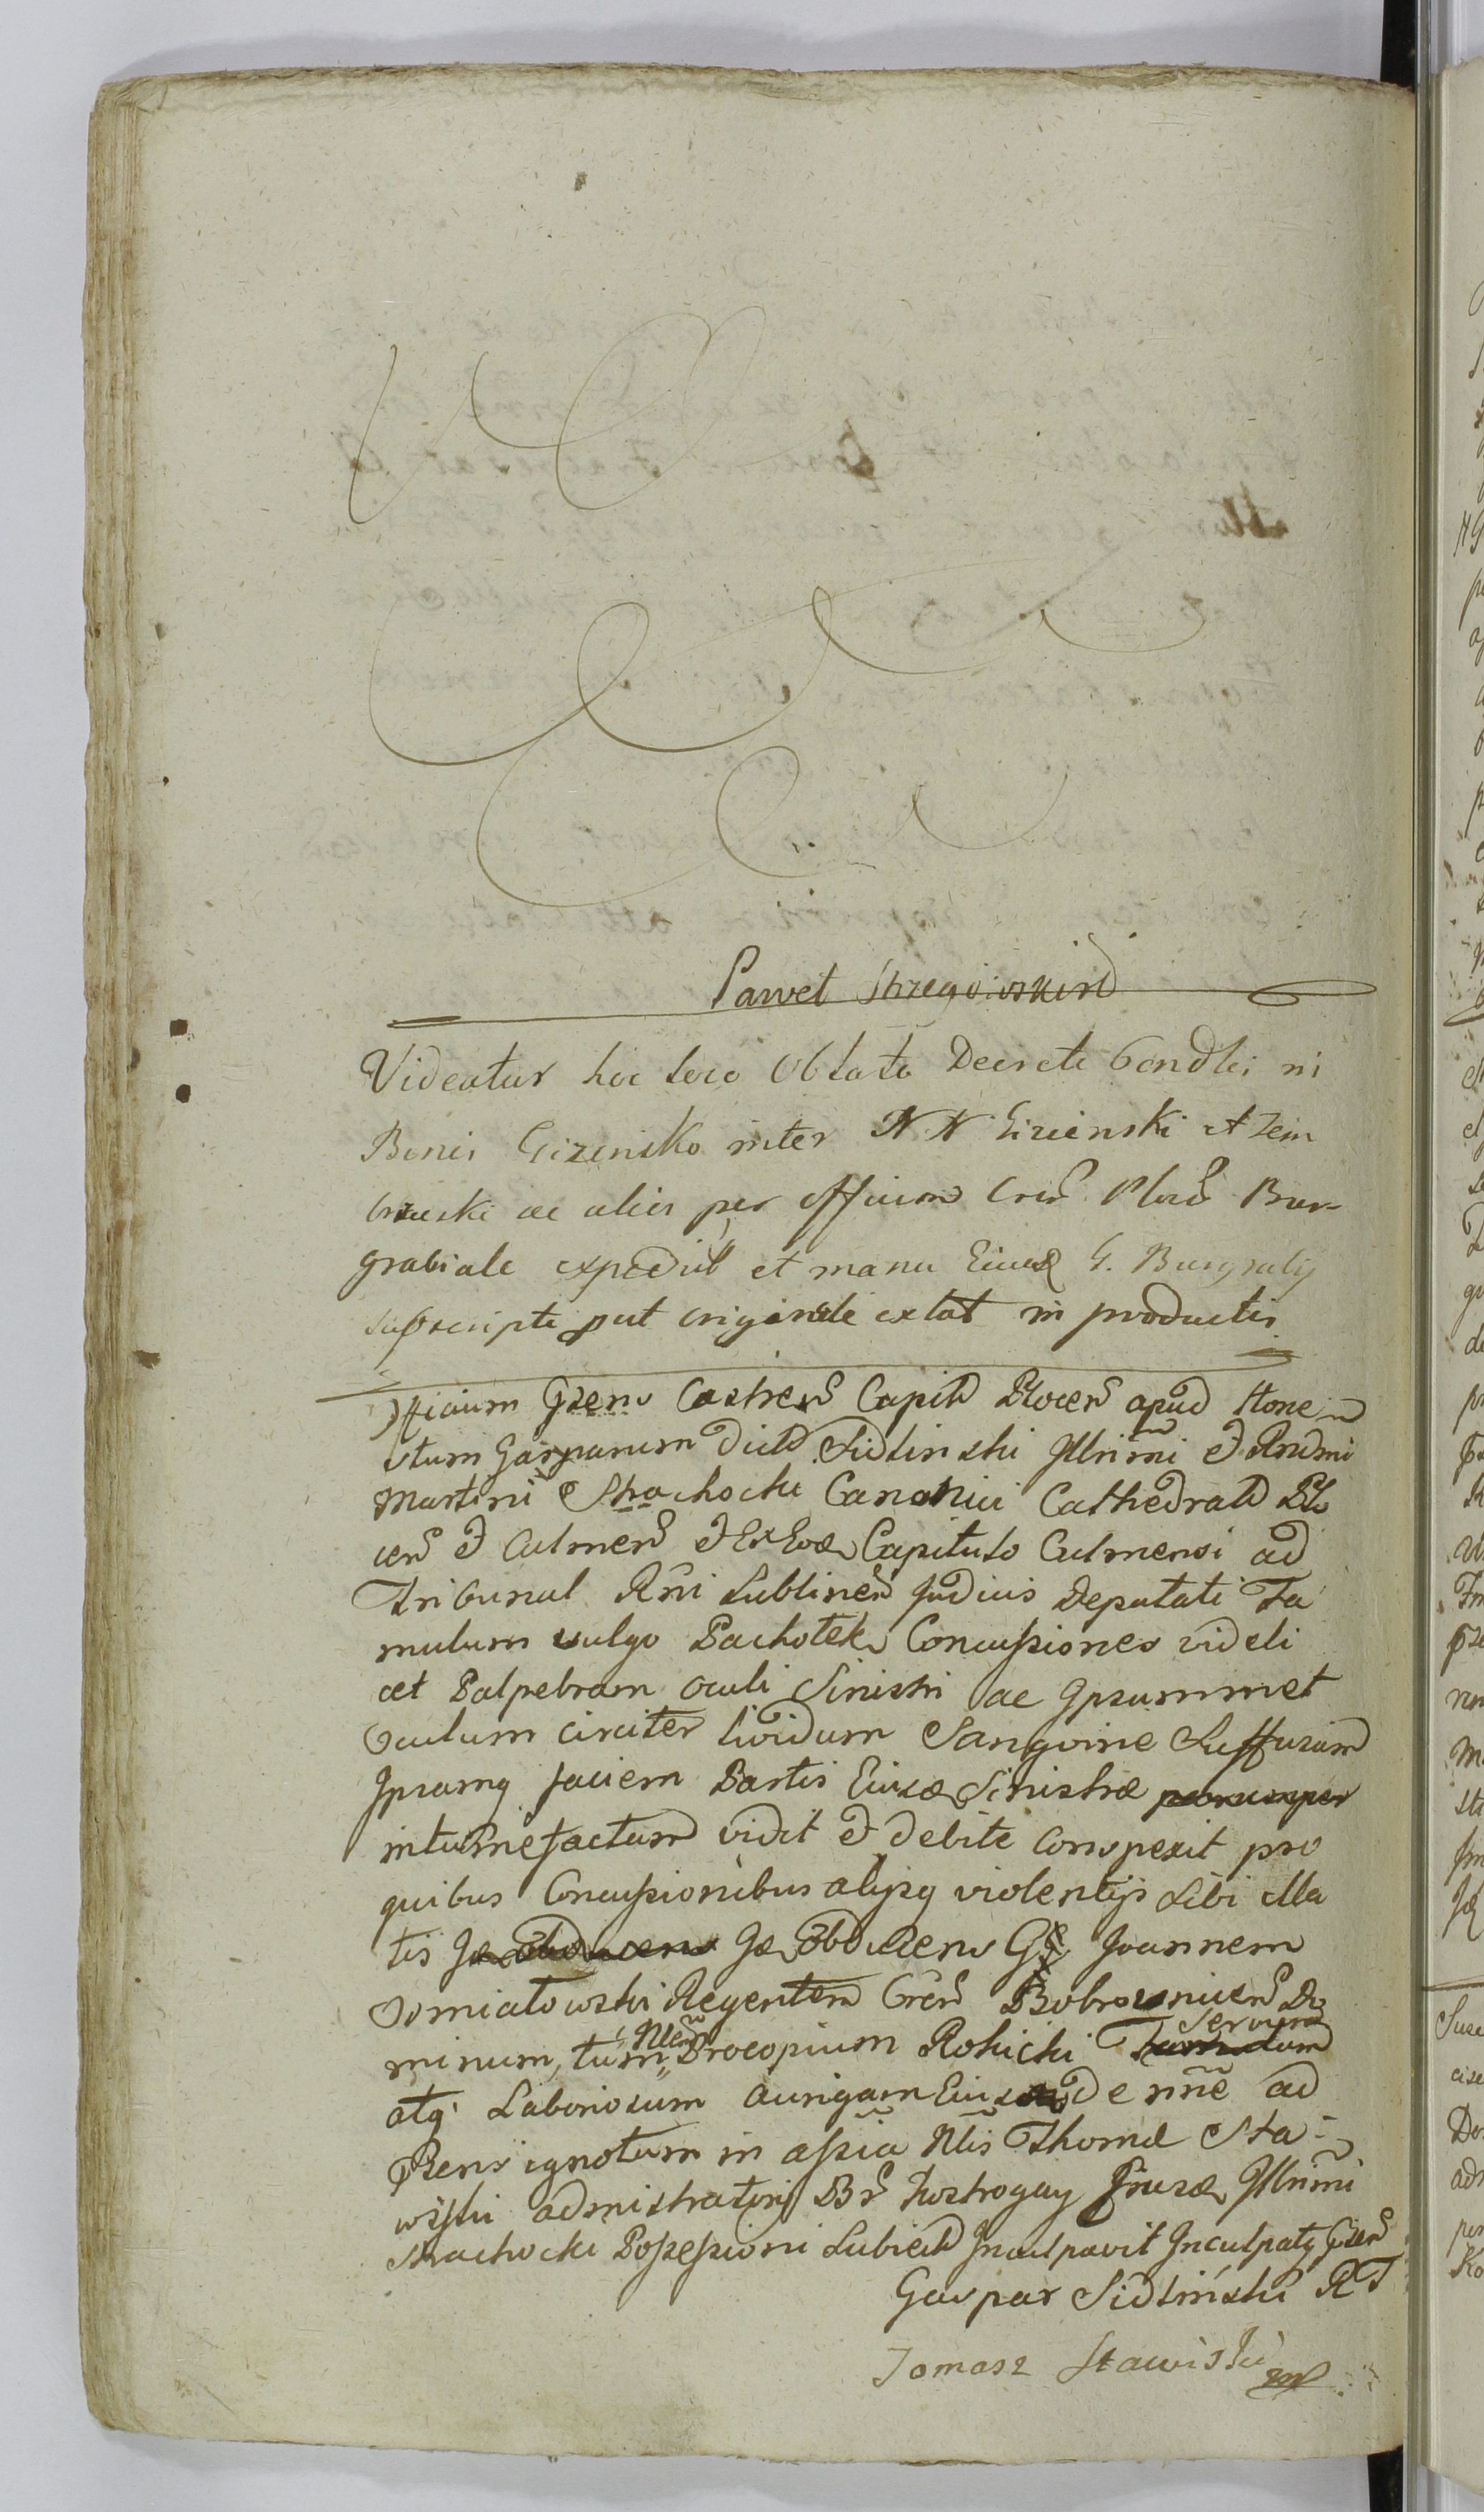 Paweł Strzegowski
Videatur hoc loco Oblata Decreti Condlis in
Bonis Gizinsko inter N N Gizinski et Zem
brzuski ac alios per officium Cren Plocen Bur-
grabiale expediti et manu Eiusd G. Burgrabij
subscripti put originale extat in productis
Officium Gsens Castren Capitl Plocen apud Hone
stum Gasparum dict Sidlinski Illrimi et Rndmi
Martini Strachocki Canonici Cathedral Plo
cen et Culmen et Capitulo Culmensi ad
Tribunal Rni Lublinen Judicis Deputati Fa
mulum vulgo Pachołek Concussiones videli
cet Palpebram oculi Sinistri ac Ipsummet
Oculum circiter lividum Sanguine Suffusum
Ipsamq faciem Partis Eiusd Sinistræ
intumefactam vidit et debite conspexit pro
quibus Concussionibus alijsq violentijs sibi illa
tis Id Obducens Joannem
Domiatowski Regentem Cren Bobrownicen Do
minum, tum Nlem Procopium Rokicki Servum
atq Laboriosum aurigam de nne ad
Psens ignotum in assia Nlis Thomæ Sta-
wiski administratoris Br Kostrogay Illrimi
Strachocki Possessioni Subiect Inculpavit Inculpatq
Gaspar Sidlinski RT
Tomasz Stawiski mp